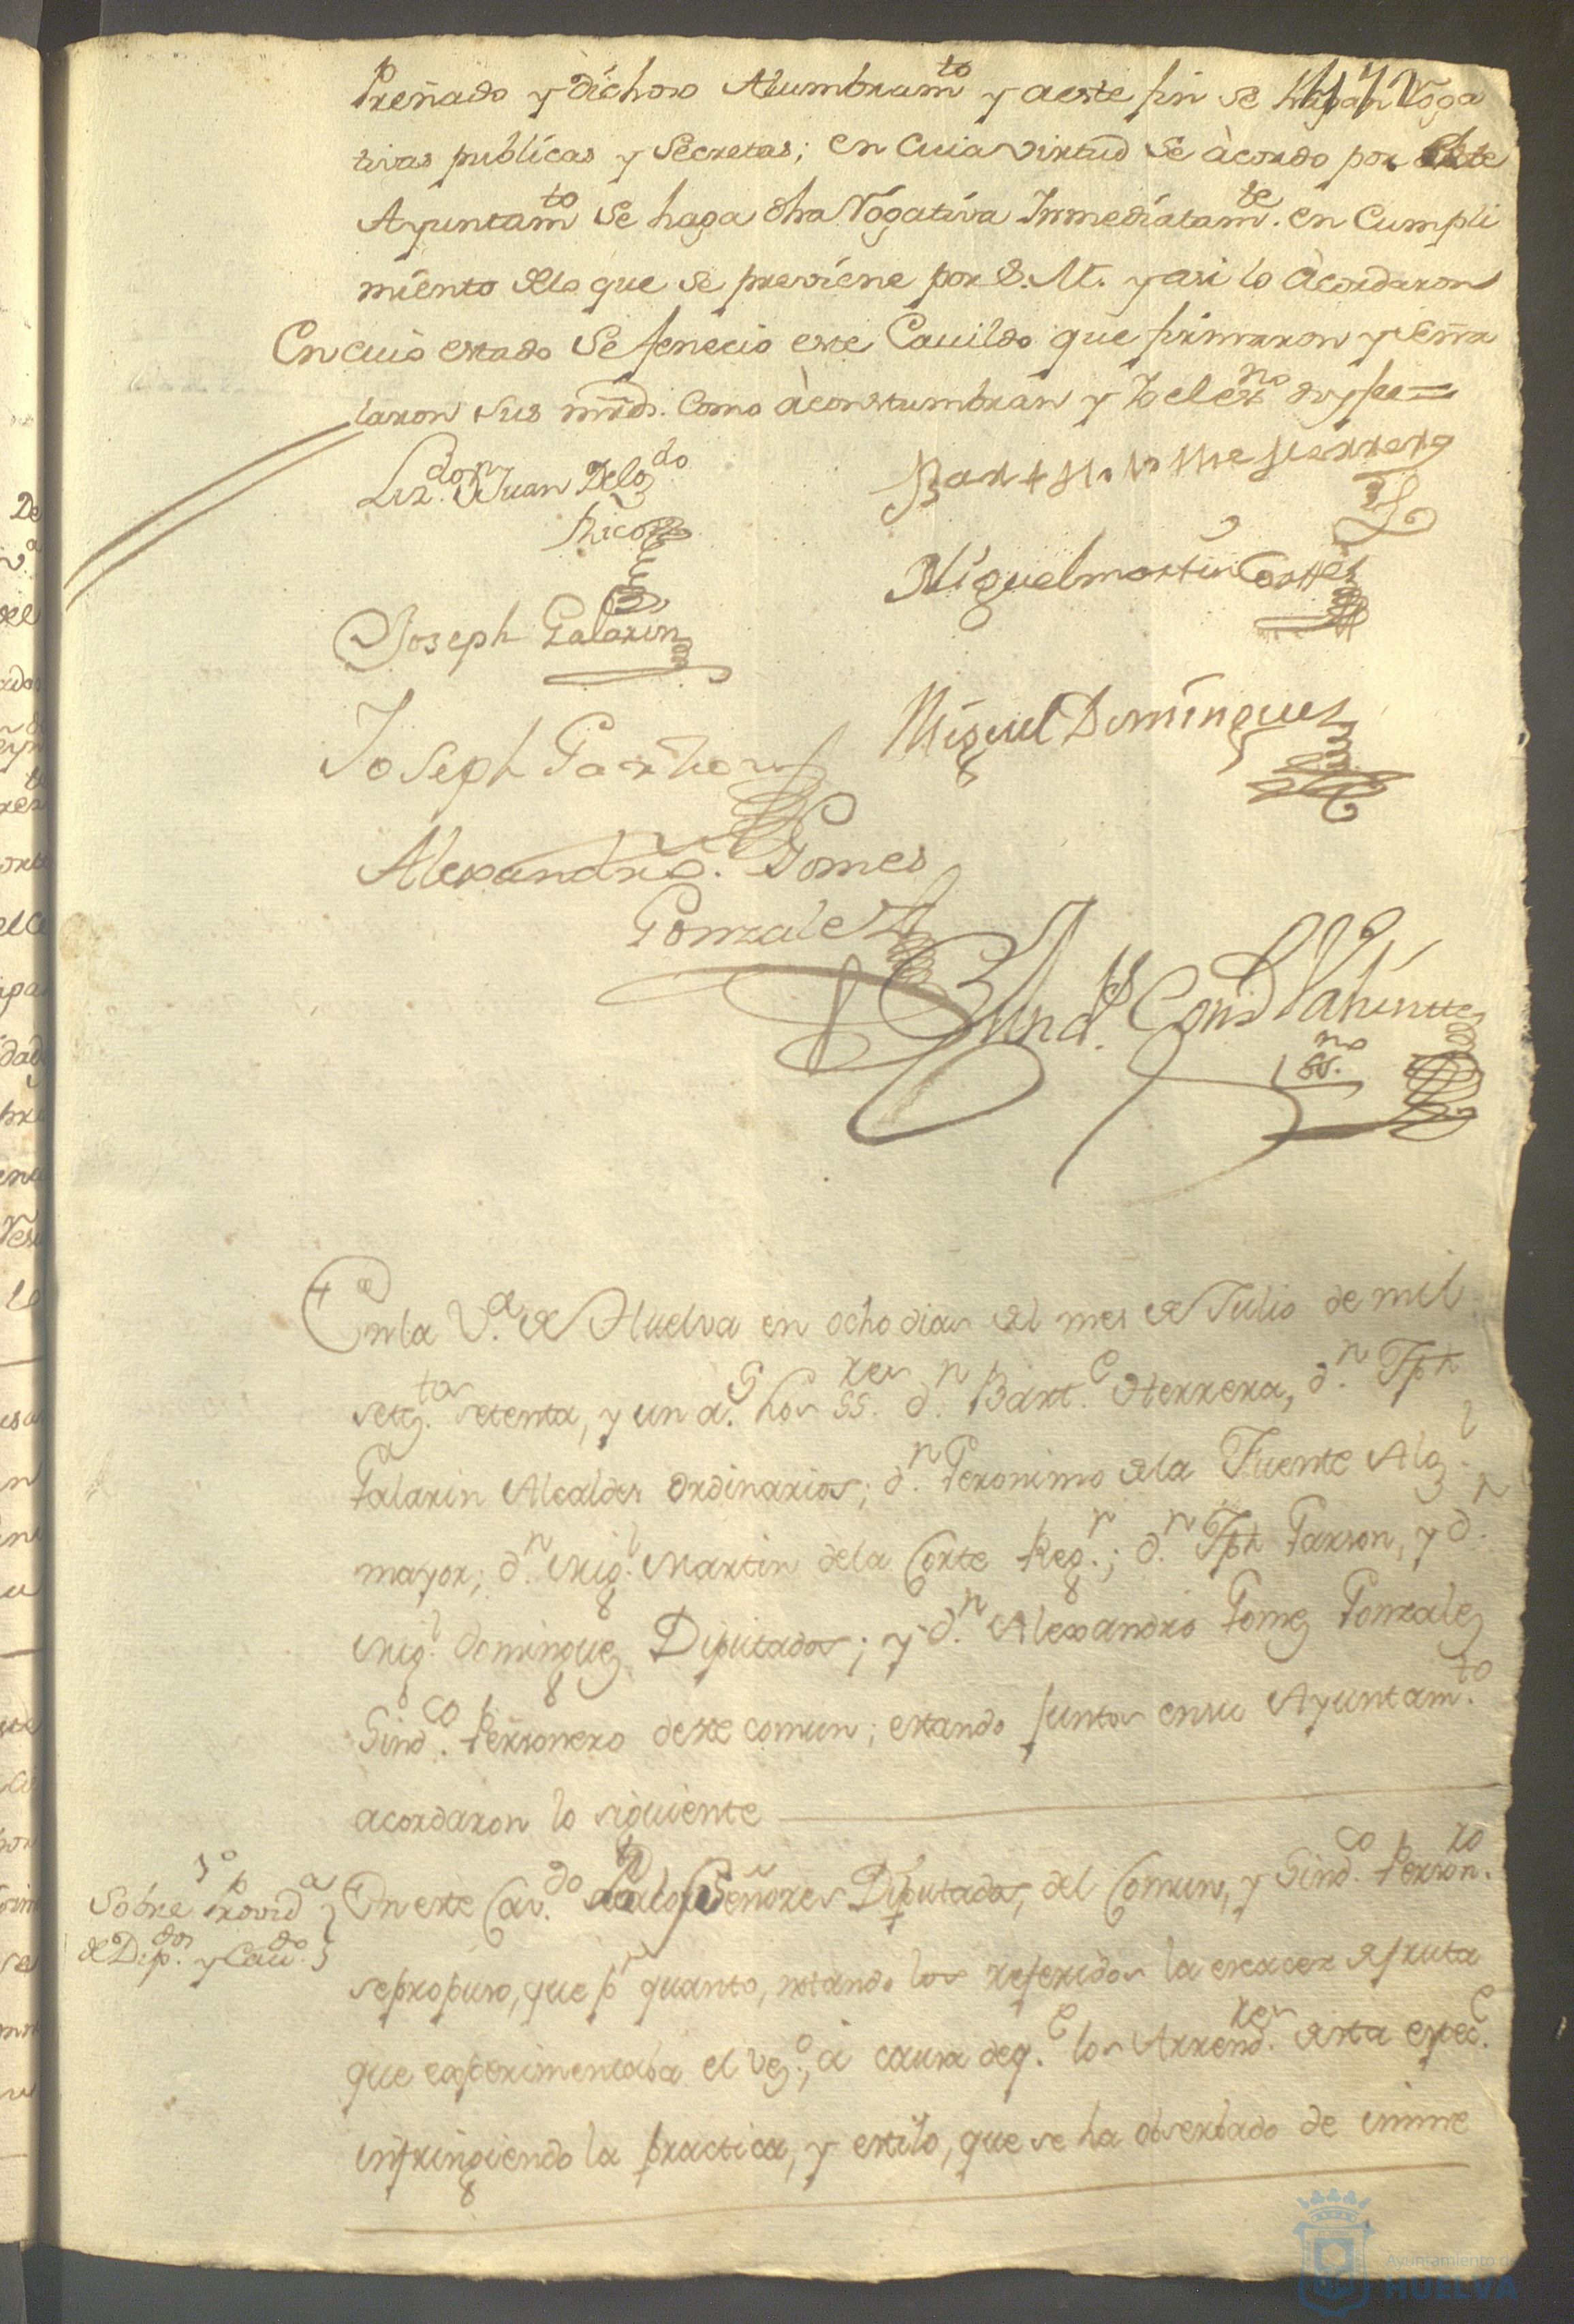 Preñado y dichoso Alumbramto y aeste fin se hagan Roga
117
tivas publicas y Secretas; en Cuia virtud Se àcordo por Este
Ayuntamto Se haga dha Rogativa Inmediatamte. en Cumpli
miento delo que se previene por S. M. y asi lo àcordaron
En cuio estado Se fenecio este Cauildo que firmaron y señá
laron sus mrds. Como àcostumbran y Yo el essno doy fee =
Lizdo. Dn Juan Delgdo
Rico
Bartolome Herrera
Miguel martin Cortes
Joseph Galarin
Miguel Domingues
Joseph Garzon
Alexandro. Gomes
Gonzalez
ssno.
En la Va. de Huelva en ocho dias del mes de Julio de mil
setestos. setenta, y un as. los SSres. dn. Barte. Herrera, dn. Jph
Galarin Alcaldes ordinarios; dn. Geronimo dela Fuente Algl.
mayor; dn. Migl. Martin dela Corte Regr.; dn. Jph Garson, y dn.
Migl. Dominguez Diputados; y dn. Alexandro Gomez Gonzalez
Sindco. Personero deste comun; estando juntos en su Ayuntamto.
acordaron lo siguiente
1o
Sobre Provida
de Dipdos. y Caudo.
En este Cavdo. Señores Diputados, del Comun, y Sindco. Personro.
se propuso, que pr quanto, notando los referidos la escacez de fruta
que experimentaba el Vezo., á causa de qe. los Arrendres. desta espece.
infringiendo la practica, y estilo, que se ha observado de inme
Ayuntamiento de
HUELVA